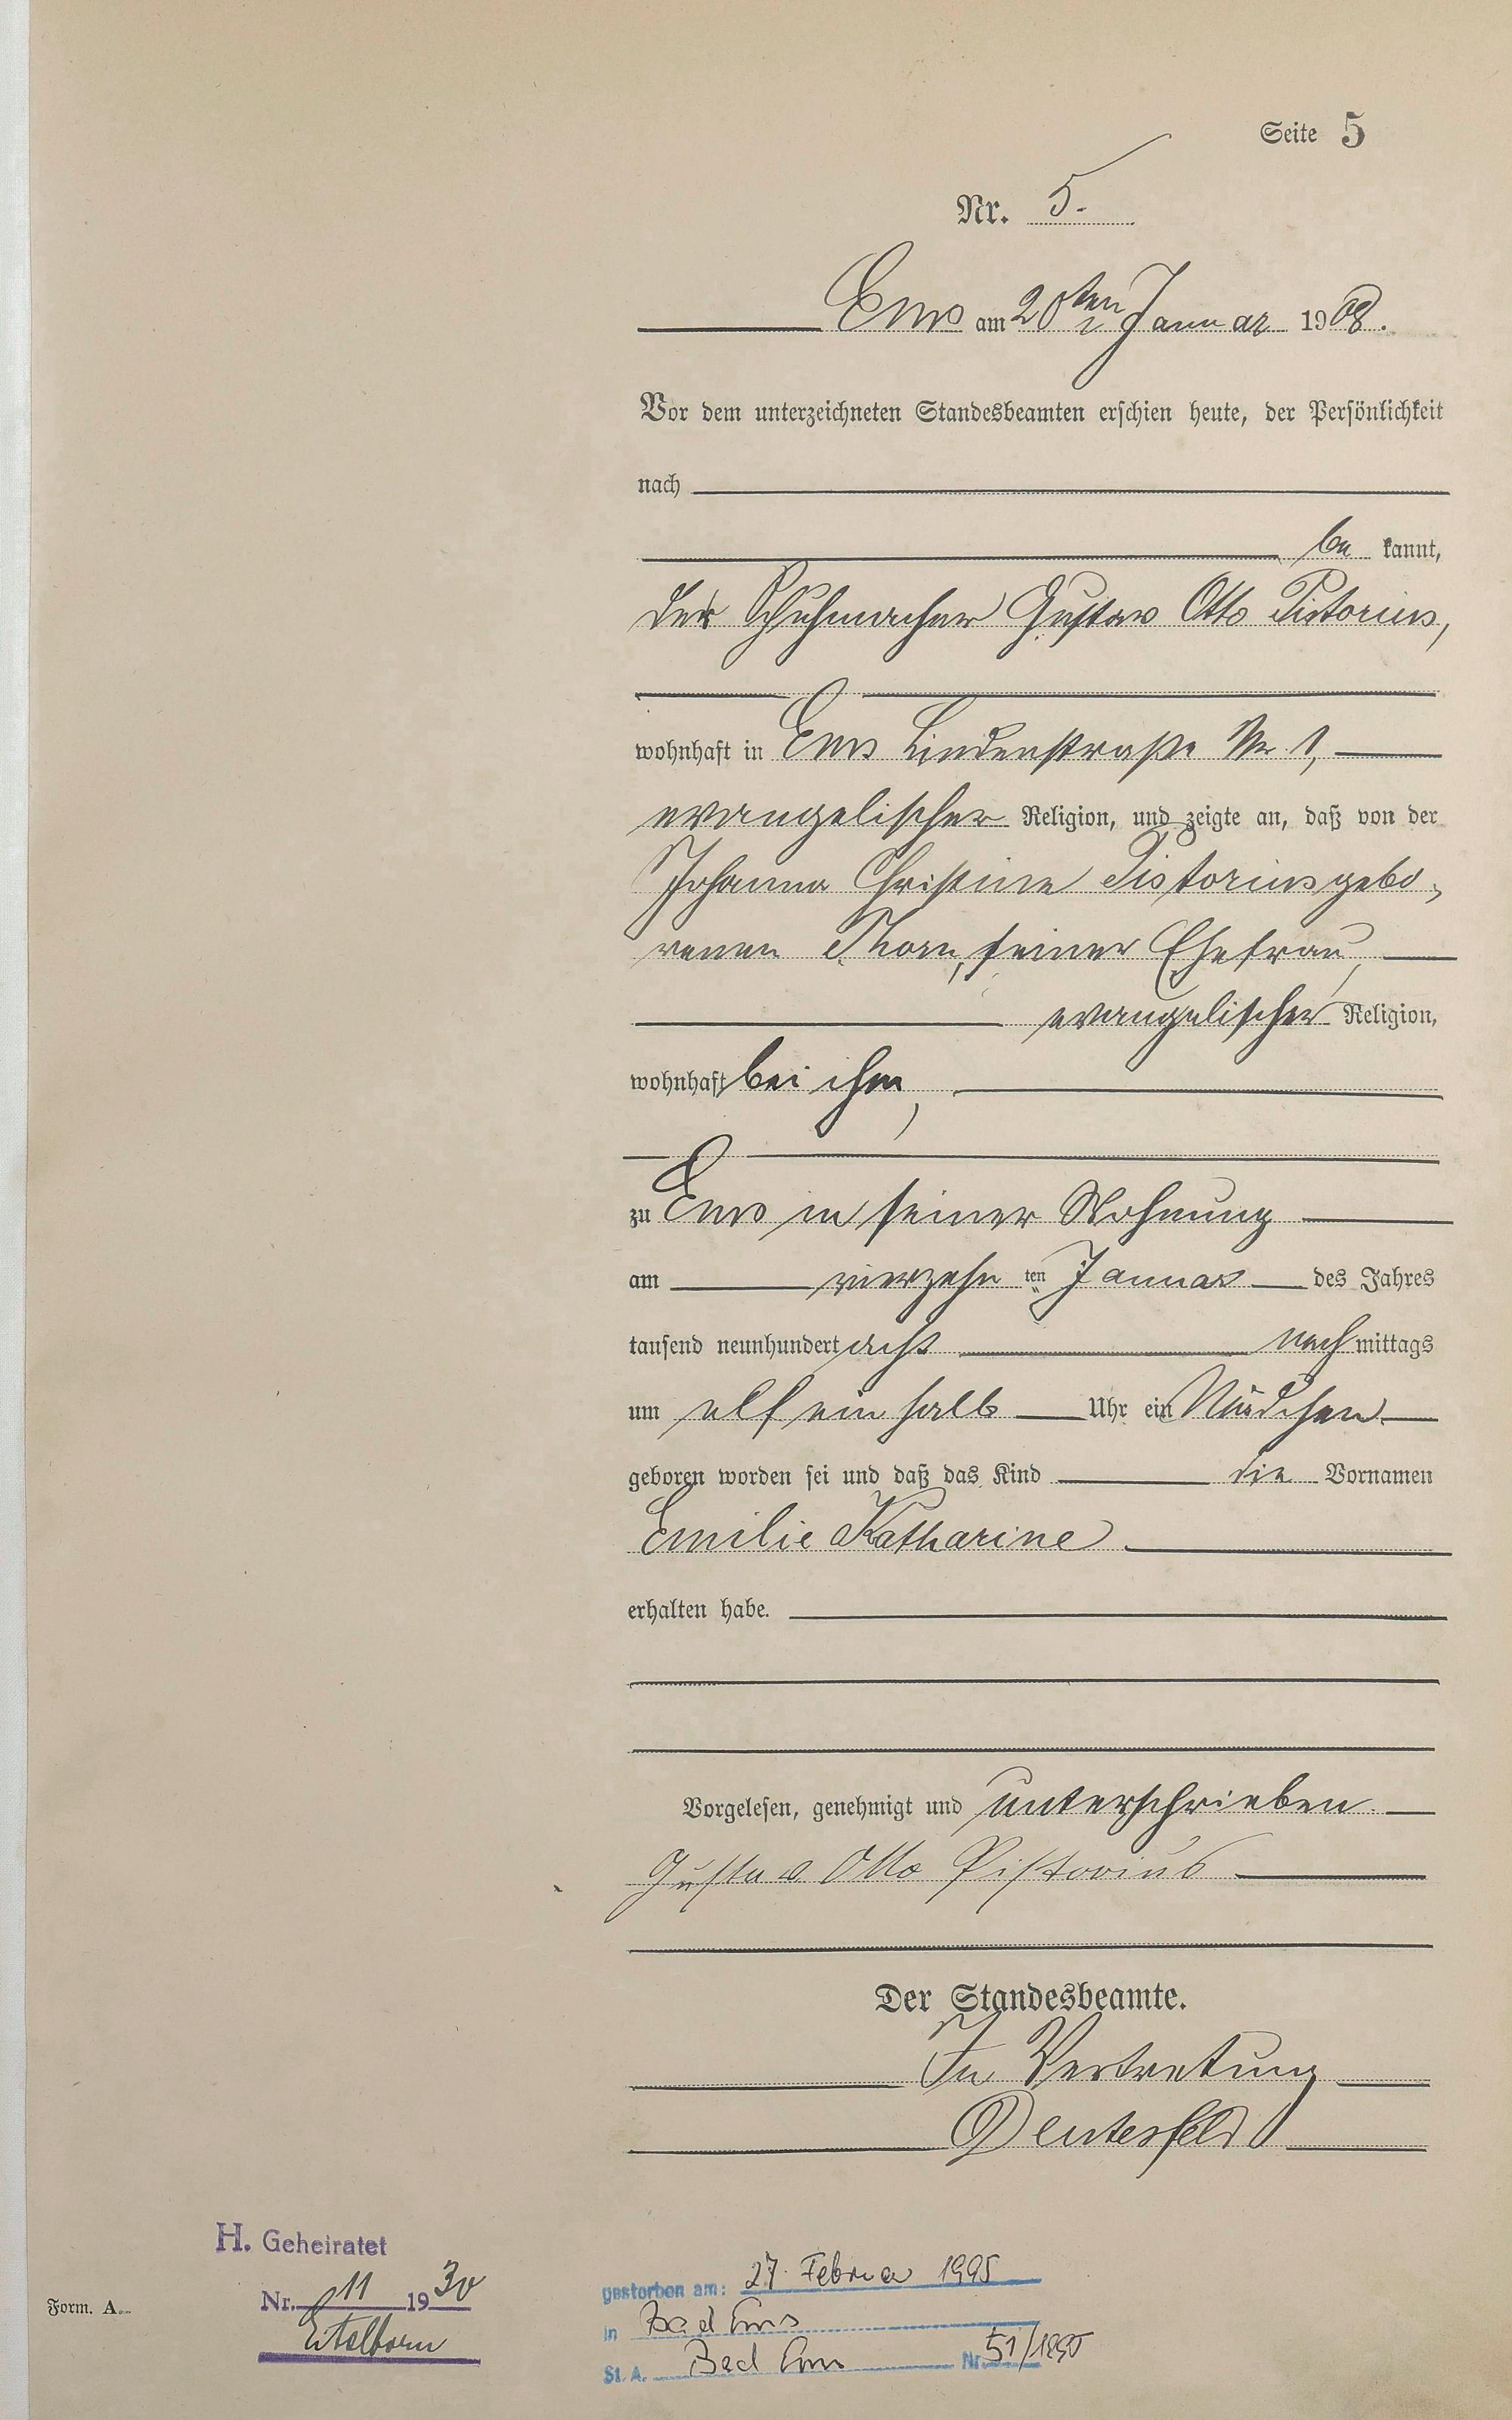 Seite 5
Nr. 5.
Ems am 20ten Januar 1908.
Vor dem unterzeichneten Standesbeamten erschien heute, der Persönlichkeit
nach
be kannt,
der Schuhmacher Gustav Otto Pistorius,
wohnhaft in Ems Lindenstraße Nr. 1,
evangelischer Religion, und zeigte an, daß von der
Johanna Christine Pistorius gebo-
renen Thorn, seiner Ehefrau,
evangelischer Religion,
wohnhaft bei ihm,
zu Ems in seiner Wohnung
am vierzehn ten Januar des Jahres
tausend neunhundert acht nach mittags
um elf ein halb Uhr ein Mädchen
geboren worden sei und daß das Kind die Vornamen
Emilie Katharine
erhalten habe.
Vorgelesen, genehmigt und unterschrieben.
Gustav Otto Pistorius
Der Standesbeamte.
In Vertretung
H. Geheiratet
Nr. 11 1930
Eitelborn
Form. A.
gestorben am: 27. Februar 1995
in Bad Ems
St. A. Bad Ems Nr. 51/1995